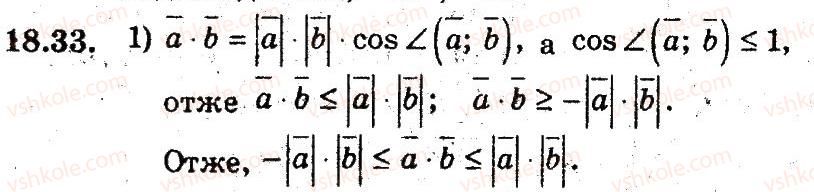 18.33. 1) \(\overline{a} \cdot \overline{b} = |\overline{a}| \cdot |\overline{b}| \cdot \cos \angle (\overline{a}; \overline{b})\), а \(\cos \angle (\overline{a}; \overline{b}) \leq 1\),
отже \(\overline{a} \cdot \overline{b} \leq |\overline{a}| \cdot |\overline{b}|\); \(\overline{a} \cdot \overline{b} \geq -|\overline{a}| \cdot |\overline{b}|\).
Отже, \(-|\overline{a}| \cdot |\overline{b}| \leq \overline{a} \cdot \overline{b} \leq |\overline{a}| \cdot |\overline{b}|\).